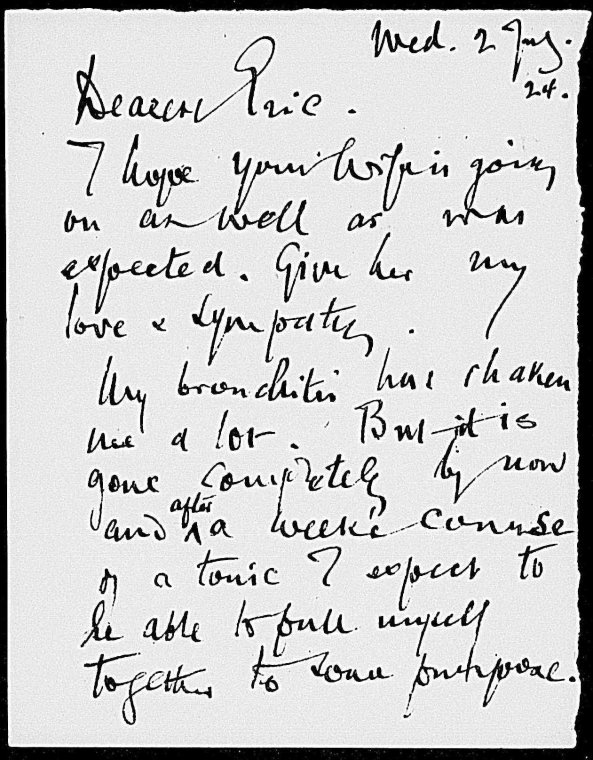 Wed. 2 July.
24.
Dearest Eric.
I hope your wife is going
on as well as was
expected. Give her my
love & sympathy.
My bronchitis has shaken
me a lot. But it is
gone completely by now
and after a week's course
of a tonic I expect to
be able to pull myself
together to some purpose.